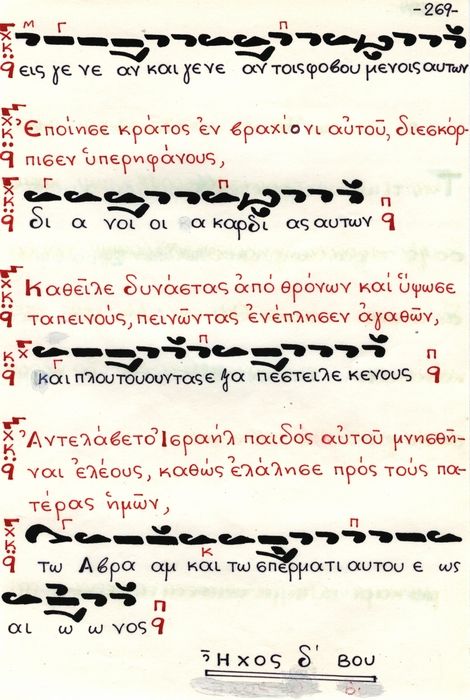 -269-
εις γε νε αν και γενε αν τοις φοβου μενοις αυτων
Ἐποίησε κράτος ἐν βραχίονι αὐτοῦ, διεσκόρ-
πισεν ὑπερηφάνους,
δι α νοι οι α καρδι ας αυτων
Καθεῖλε δυνάστας ἀπό θρόνων καί ὕψωσε
ταπεινούς, πεινῶντας ἐνέπλησεν ἀγαθῶν,
και πλουτουουντας ε ξα πεστειλε κενους
Ἀντελάβετο Ἰσραήλ παιδός αὐτοῦ μνησθῆ-
ναι ἐλέους, καθώς ἐλάλησε πρός τούς πα-
τέρας ἡμῶν,
τω Αβρα αμ και τω σπερματι αυτου ε ως
αι ω ω νος
Ἦχος δ' Βου